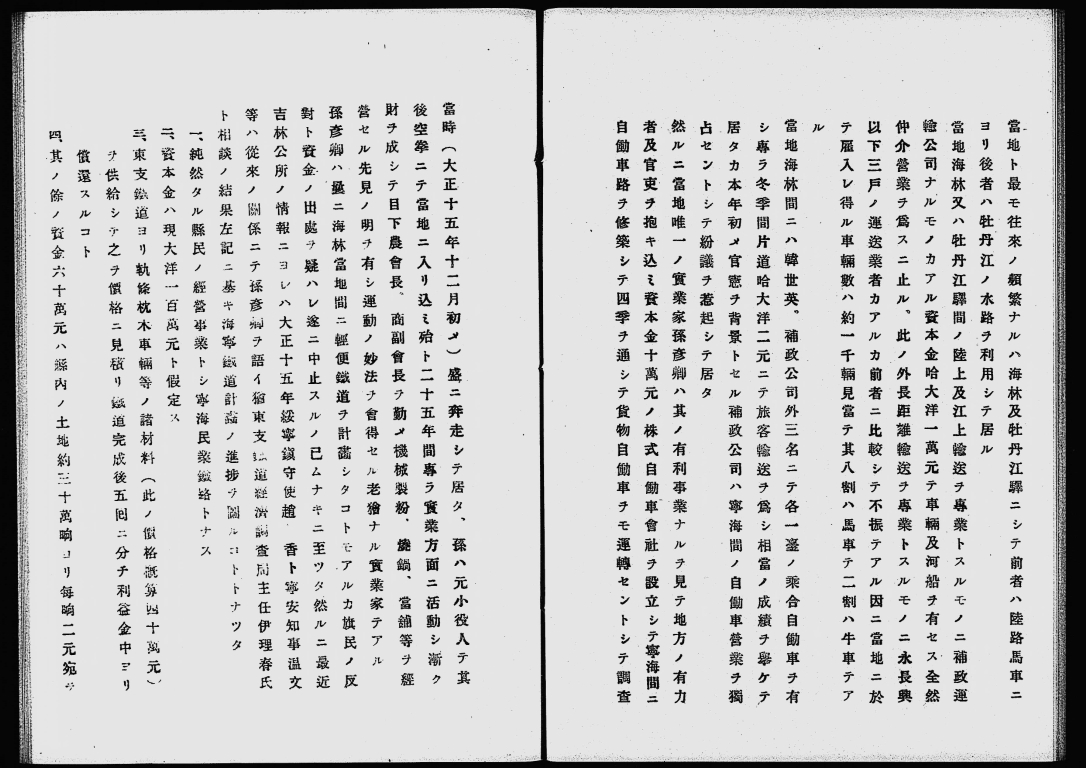 當地ト最モ往來ノ頻繁ナルハ海林及牡丹江驛ニシテ前者ハ陸路馬車ニ
ヨリ後者ハ牡丹江ノ水路ヲ利用シテ居ル
當地海林又ハ牡丹江驛間ノ陸上及江上輸送ヲ專業トスルモノニ補政運
輸公司ナルモノカアル資本金哈大洋一萬元テ車輛及河船ヲ有セス全然
仲介營業ヲ爲スニ止ル。此ノ外長距離輸送ヲ專業トスルモノニ永長興
以下三戸ノ運送業者カアルカ前者ニ比較シテ不振テアル因ニ當地ニ於
テ雇入レ得ル車輛數ハ約一千輛見當テ其八割ハ馬車テ二割ハ牛車テア
ル
當地海林間ニハ韓世英。補政公司外三名ニテ各一臺ノ乘合自働車ヲ有
シ專ラ冬季間片道哈大洋二元ニテ旅客輸送ヲ爲シ相當ノ成績ヲ擧ケテ
居タカ本年初メ官憲ヲ背景トセル補政公司ハ寧海間ノ自働車營業ヲ獨
占セントシテ紛議ヲ惹起シテ居タ
然ルニ當地唯一ノ實業家孫彥卿ハ其ノ有利事業ナルヲ見テ地方ノ有力
者及官吏ヲ抱キ込ミ資本金十萬元ノ株式自働車會社ヲ設立シテ寧海間ニ
自働車路ヲ修築シテ四季ヲ通シテ貨物自働車ヲモ運轉セントシテ調査
當時(大正十五年十二月初メ)盛ニ奔走シテ居タ、孫ハ元小役人テ其
後空拳ニテ當地ニ入リ込ミ殆ト二十五年間專ラ實業方面ニ活動シ漸ク
財ヲ成シテ目下農會長。商副會長ヲ勤メ機械製粉、燒鍋、當舖等ヲ經
營セル先見ノ明ヲ有シ運動ノ妙法ヲ會得セル老獪ナル實業家テアル
孫彥卿ハ曩ニ海林當地間ニ輕便鐵道ヲ計畵シタコトモアルカ旗民ノ反
對ト資金ノ出處ヲ疑ハレ遂ニ中止スルノ已ムナキニ至ツタ然ルニ最近
吉林公所ノ情報ニヨレハ大正十五年綏寧鎭守使趙 香ト寧安知事溫文
等ハ從來ノ關係ニテ孫彥卿ヲ語イ猶東支鐵道經濟調查局主任伊理春氏
ト相談ノ結果左記ニ基キ海寧鐵道計畵ノ進捗ヲ圖ルコトトナツタ
一、純然タル縣民ノ經營事業トシ寧海民業鐵路トナス
二、資本金ハ現大洋一百萬元ト假定ス
三、東支鐵道ヨリ軌條枕木車輛等ノ諸材料(此ノ價格概算四十萬元)
ヲ供給シテ之ヲ價格ニ見積リ鐵道完成後五囘ニ分チ利益金中ヨリ
償還スルコト
四、其ノ餘ノ資金六十萬元ハ縣內ノ土地約三十萬晌ヨリ每晌二元宛ヲ